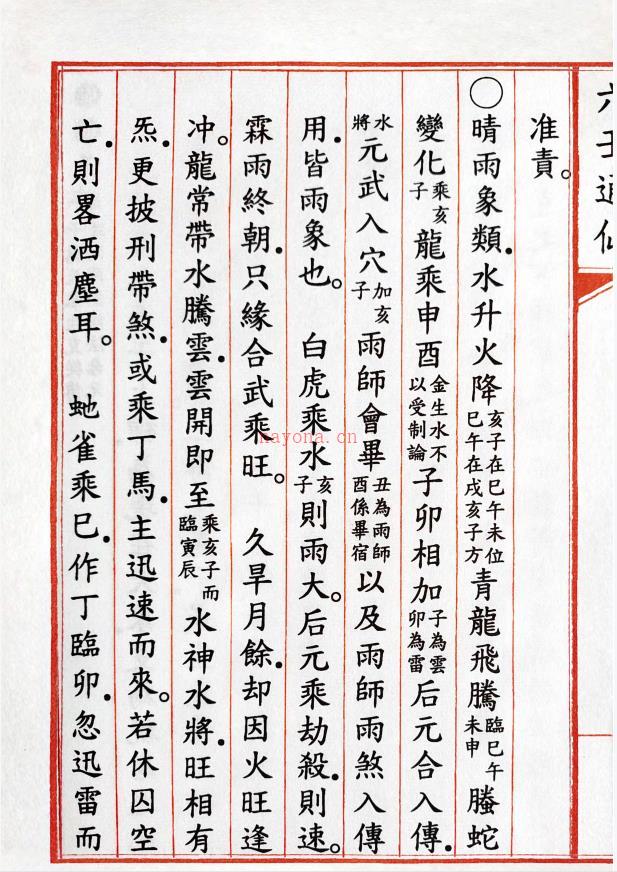 六壬通仙
准責。
〇晴雨象類.水升火降亥子在巳午未位巳午在戌亥子方青龍飛騰臨巳午未申螣蛇
變化乘亥子龍乘申酉金生水不以受制論子卯相加子為雲卯為雷后元合入傳.
水將元武入穴加亥子雨師會畢丑為雨師酉係畢宿以及雨師雨煞入傳
用.皆雨象也。　白虎乘水亥子則雨大。后元乘劫殺.則速。
霖雨終朝.只緣合武乘旺。　久旱月餘.却因火旺逢
冲。龍常帶水騰雲.雲開即至乘亥子而臨寅辰水神水將.旺相有
炁.更披刑帶煞.或乘丁馬.主迅速而來。若休囚空
亡.則畧洒塵耳。　虵雀乘巳.作丁臨卯.忽迅雷而
nayona.cn